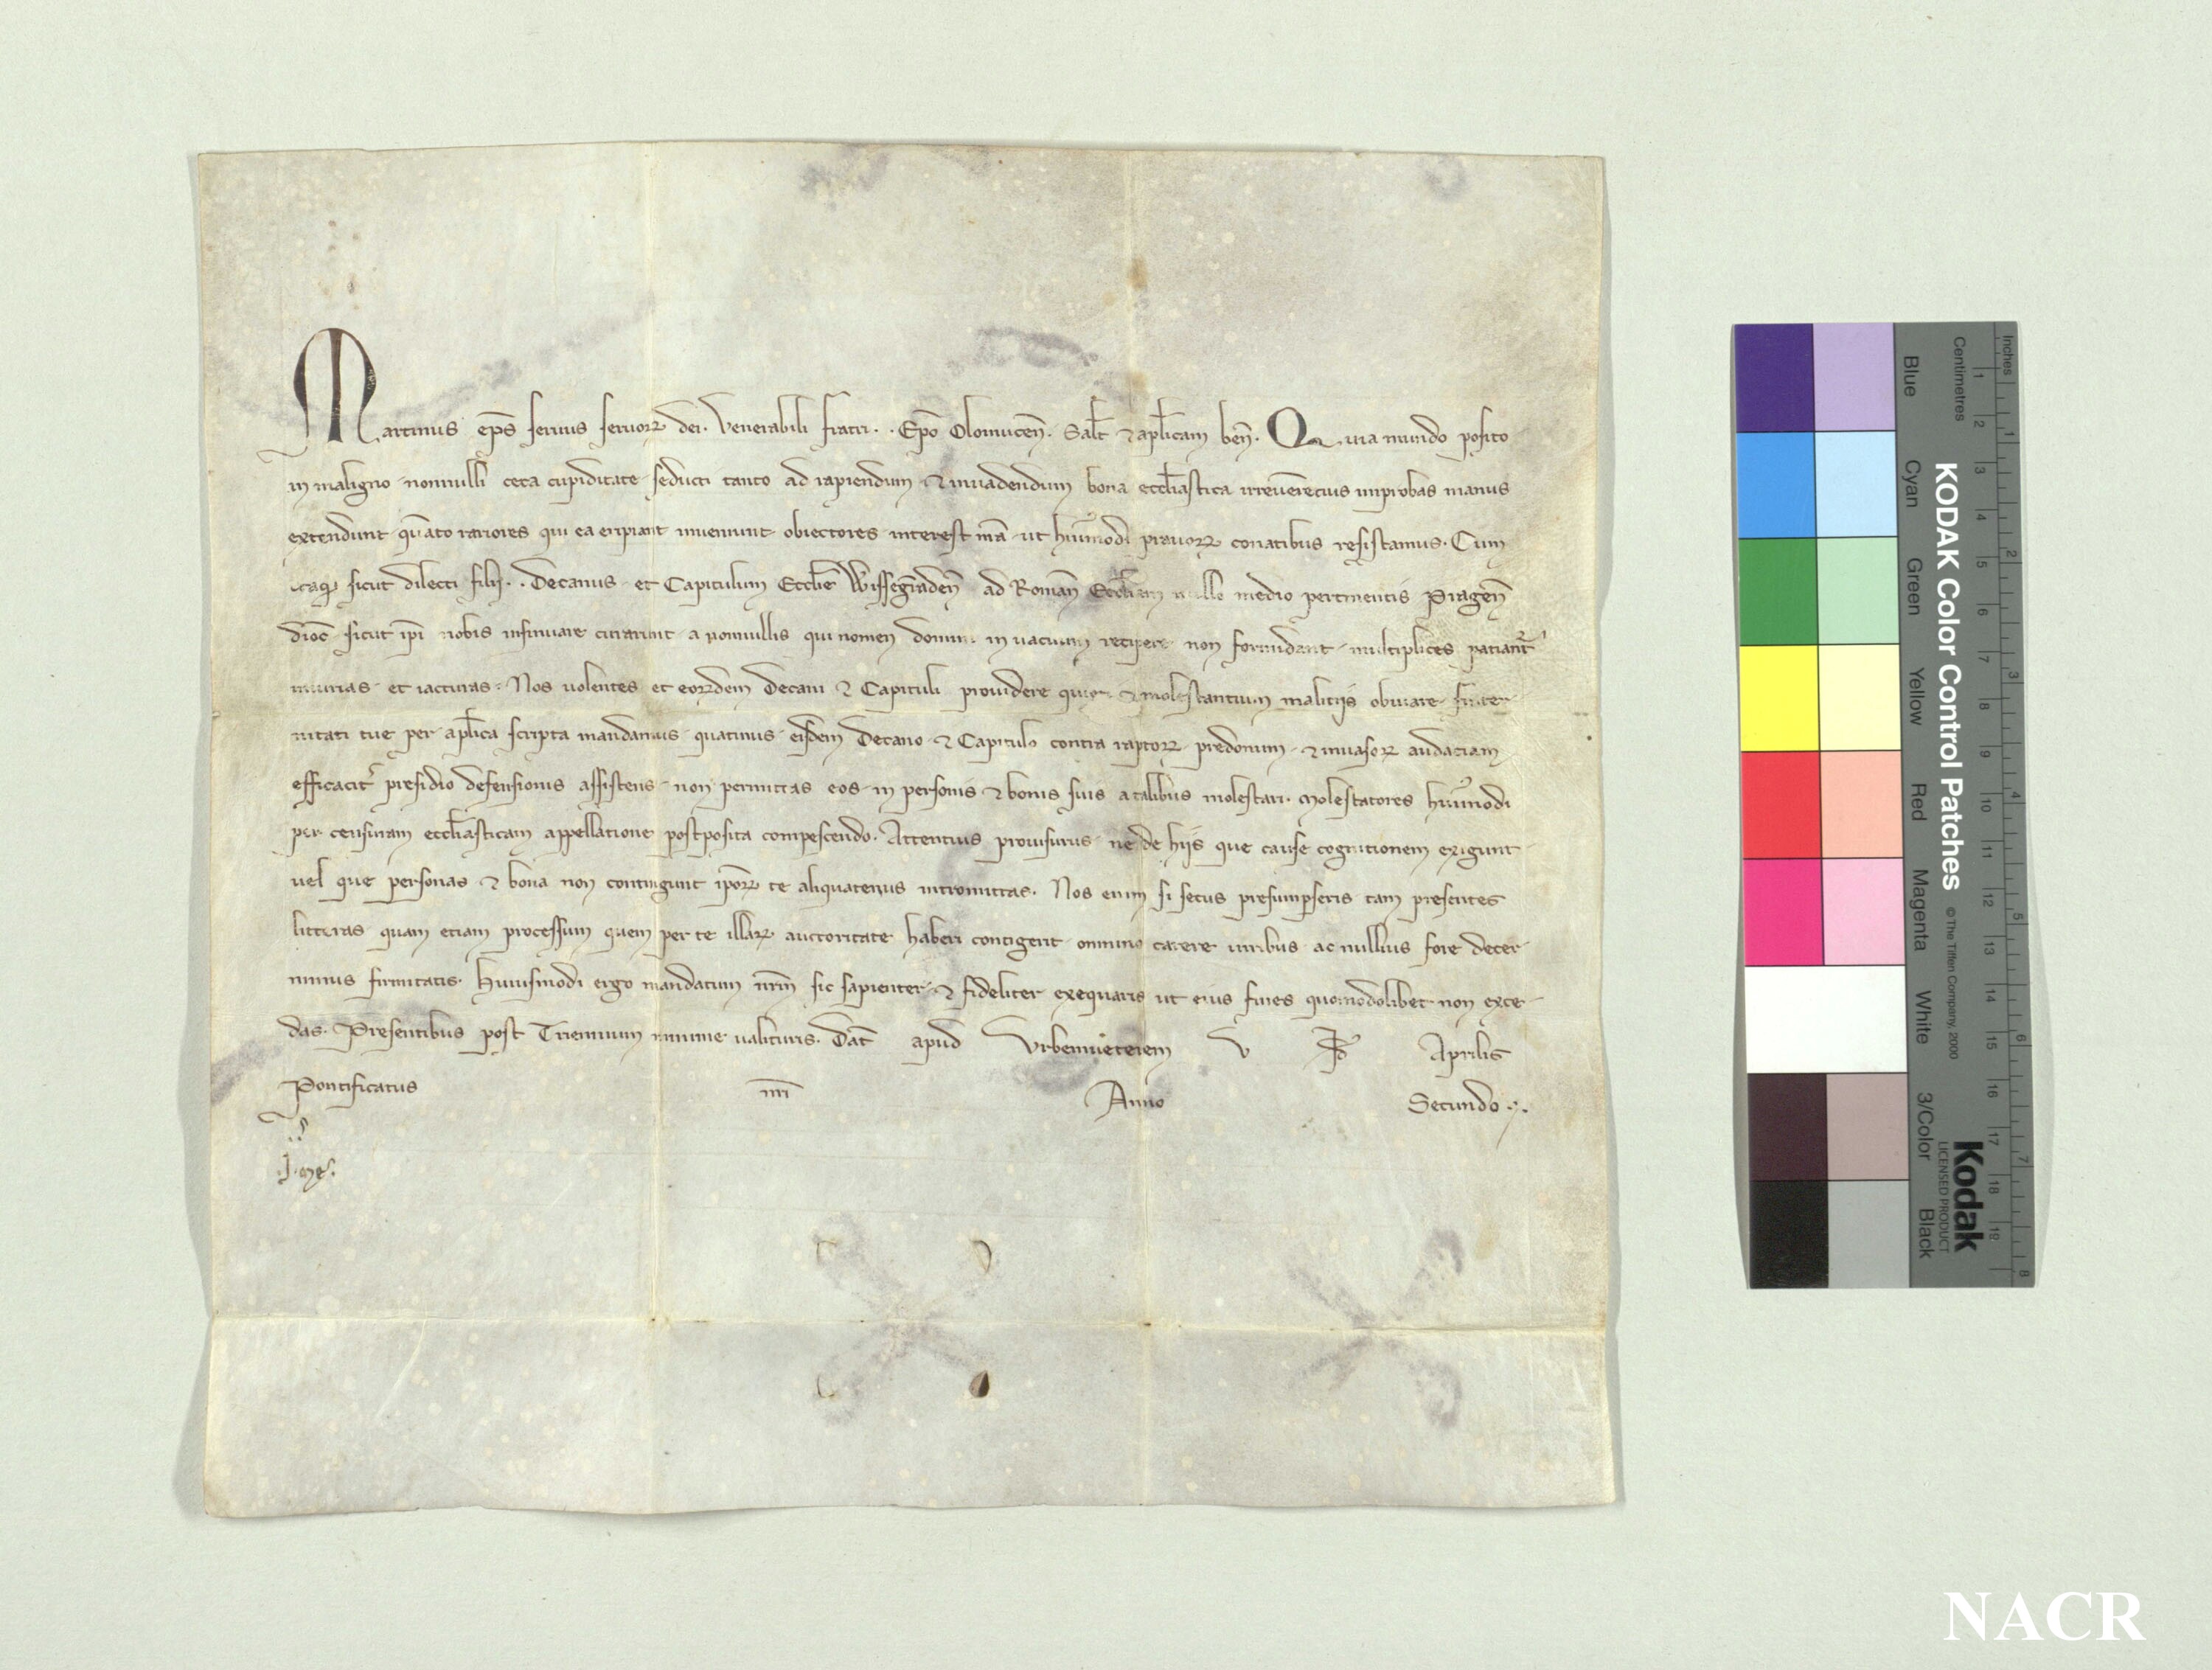 Martinus ep̄s seruus seruoꝝ dei. Venerabili fratri. . Ep̄o Olomucen̄. Sal̄t ⁊ apl̄icam ben̄. Quia mundo posito
in maligno nonnulli ceca cupiditate seducti tanto ad rapiendum ⁊ inuadendum bona eccl̄iastica irreuerecius improbas manus
extendunt quāto rariores qui ea eripiant inueniunt obiectores interest nr̄a ut huiꝰmodi prauoꝝ conatibus resistamus. Cum
itaqꝫ sicut dilecti filij. . Decanus et Capitulum Eccl̄ie Wissegraden̄ ad Roman̄ Eccl̄iam nullo medio pertinentis Pragen̄
dioc̄ sicut ip̄i nobis insinuare curarunt a nonnullis qui nomen domini in uacuum recipere non formidant multiplices patiant᷑
iniurias et iacturas. Nos uolentes et eoꝝdem Decani ⁊ Capituli prouidere quieti ⁊ molestantium malitijs obuiare frater
nitati tue per apl̄ica scripta mandamus quatinus eisdem Decano ⁊ Capitulo contra raptoꝝ predonum ⁊ inuasoꝝ audaciam
efficacit᷑ presidio defensionis assistens non permittas eos in personis ⁊ bonis suis a talibus molestari. Molestatores huiꝰmodi
per censuram eccl̄iasticam appellatione postposita compescendo. Attentius prouisurus ne de hijs que cause cognitionem exigunt
uel que personas ⁊ bona non contingunt ip̄oꝝ te aliquatenus intromittas. Nos enim si secus presumpseris tam presentes
litteras quam etiam processum quem per te illaꝝ auctoritate haberi contigerit omnino carere uiribus ac nullius fore decer
nimus firmitatis. Huiusmodi ergo mandatum nr̄m sic sapienter ⁊ fideliter exequaris ut eius fines quomodolibet non exce
das. Presentibus post Triennium minime ualituris. Dat̄ apud Vrbemueterem V kl̄ Aprilis
Pontificatus nr̄i Anno Secundo
Inches
Centimetres
KODAK Color Control Patches
© The Tiffen Company, 2000
Kodak
LICENSED PRODUCT
Blue
Cyan
Green
Yellow
Red
Magenta
White
3/Color
Black
NACR